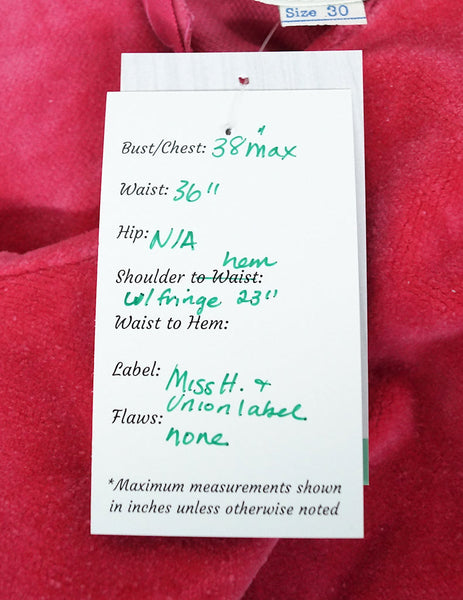 Size 30
Bust/Chest: 38" max
Waist: 36"
Hip: N/A
hem
Shoulder to Waist:
w/ fringe 23"
Waist to Hem:
Label: Miss H. +
Union label
Flaws: none
*Maximum measurements shown
in inches unless otherwise noted